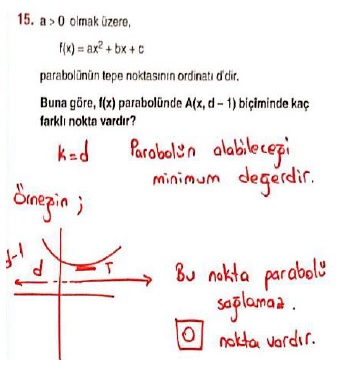 15. a > 0 olmak üzere,
f(x) = ax² + bx + c
parabolünün tepe noktasının ordinatı d'dir.
Buna göre, f(x) parabolünde A(x, d – 1) biçiminde kaç
farklı nokta vardır?
k=d Parabolün alabileceği
minimum değerdir.
Örneğin ;
d-1
d T
Bu nokta parabolü
sağlamaz.
0 nokta vardır.